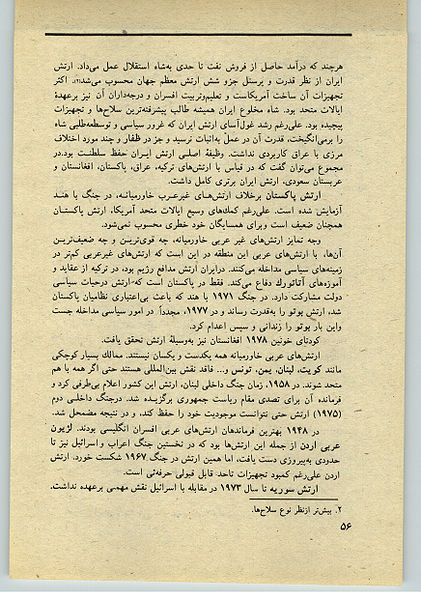 هرچند که درآمد حاصل از فروش نفت تا حدی به‌شاه استقلال عمل می‌داد. ارتش
ایران از نظر قدرت و پرسنل جزو شش ارتش معظم جهان محسوب می‌شد۲. اکثر
تجهیزات آن ساخت آمریکاست و تعلیم‌وتربیت افسران و درجه‌داران آن نیز برعهدهٔ
ایالات متحد بود. شاه مخلوع ایران همیشه طالب پیشرفته‌ترین سلاح‌ها و تجهیزات
پیچیده بود. علی‌رغم رشد غول‌آسای ارتش ایران که غرور سیاسی و توسعه‌طلبی شاه
را برمی‌انگیخت، قدرت آن در عمل به‌اثبات نرسید و جز در ظفار و چند مورد اختلاف
مرزی با عراق کاربردی نداشت. وظیفهٔ اصلـی ارتش ایـران حفظ سلطنـت بود.در
مجموع می‌توان گفت که در قیاس با ارتش‌های ترکیه، عراق، پاکستان، افغانستان و
عربستان سعودی، ارتش ایران برتری کامل داشت.
ارتش پاکستان برخلاف ارتش‌هـای غیرعـرب خاورمیانـه، در جنگ با هنـد
آزمایش شده است. علی‌رغم کمك‌های وسیع ایالات متحد آمریکا، ارتش پاکستـان
همچنان ضعیف است وبرای همسایگان خود خطری محسوب نمی‌شود.
وجه تمایز ارتش‌های غیر عربی خاورمیانه، چه قوی‌تریـن و چه ضعیف‌تریـن
آن‌ها، با ارتش‌های عربی این منطقه در این است که ارتش‌های غیرعربی کم‌تر در
زمینه‌های سیاسی مداخله می‌کنند. درایران ارتش مدافع رژیم بود، در ترکیه از عقاید و
آموزه‌های آتاتورك دفاع می‌کند. فقط در پاکستان است که ارتش درحیات سیاسی
دولت مشارکت دارد. در جنگ ۱۹۷۱ با هند که باعث بی‌اعتباری نظامیان پاکستان
شد، ارتش بوتو را به‌قدرت رساند و در ۱۹۷۷، مجدداً در امور سیاسی مداخله جست
واین بار بوتو را زندانی و سپس اعدام کرد.
کودتای خونین ۱۹۷۸ افغانستان نیز به‌وسیلهٔ ارتش تحقق یافت.
ارتش‌های عربی خاورمیانه همه یکدست و یکسان نیستند. ممالك بسیار کوچکی
مانند کویت، لبنان، یمن، تونس و... فاقد نقش بین‌المللی هستند حتی اگر همه با هم
متحد شوند. در ۱۹۵۸، زمان جنگ داخلی لبنان، ارتش این کشور اعلام بی‌طرفی کرد و
فرمانده آن برای تصدی مقام ریاست جمهوری برگزیـده شد. درجنگ داخلی دوم
(۱۹۷۵) ارتش حتی نتوانست موجودیت خود را حفظ کند، و در نتیجه مضمحل شد.
در ۱۹۴۸ بهترین فرماندهان ارتش‌های عربی افسران انگلیسی بودند. لژیون
عربی اردن از جمله این ارتش‌ها بود که در نخستین جنگ اعراب و اسرائیل نیز تا
حدودی به‌پیروزی دست یافت، اما همین ارتش در جنگ ۱۹۶۷ شکست خورد. ارتش
اردن علی‌رغم کمبود تجهیزات تاحد قابل قبولی حرفه‌ئی است.
ارتش سوریه تا سال ۱۹۷۳ در مقابله با اسرائیل نقش مهمـی برعهده نداشت.
۲. بیش‌تر ازنظر نوع سلاح‌ها.
۵۶